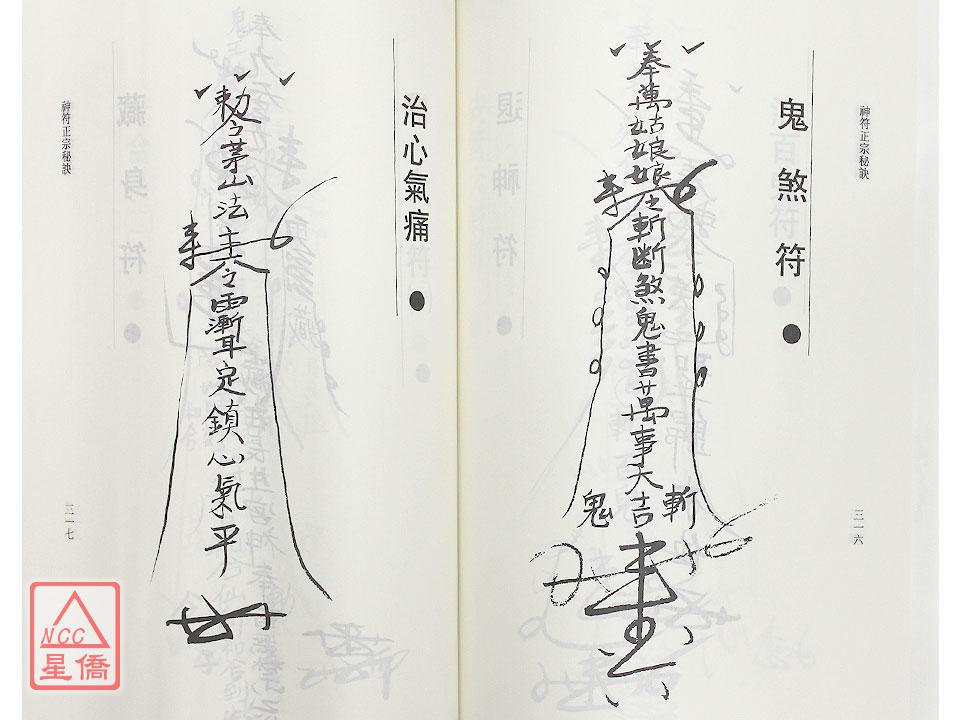 神符正宗秘訣
鬼煞符●
奉萬姑娘娘之斬斷煞鬼書萬事大吉
斬鬼
三一六
治心氣痛●
勅令茅山法主之
定鎮心氣平
神符正宗秘訣
三一七
NCC
星僑